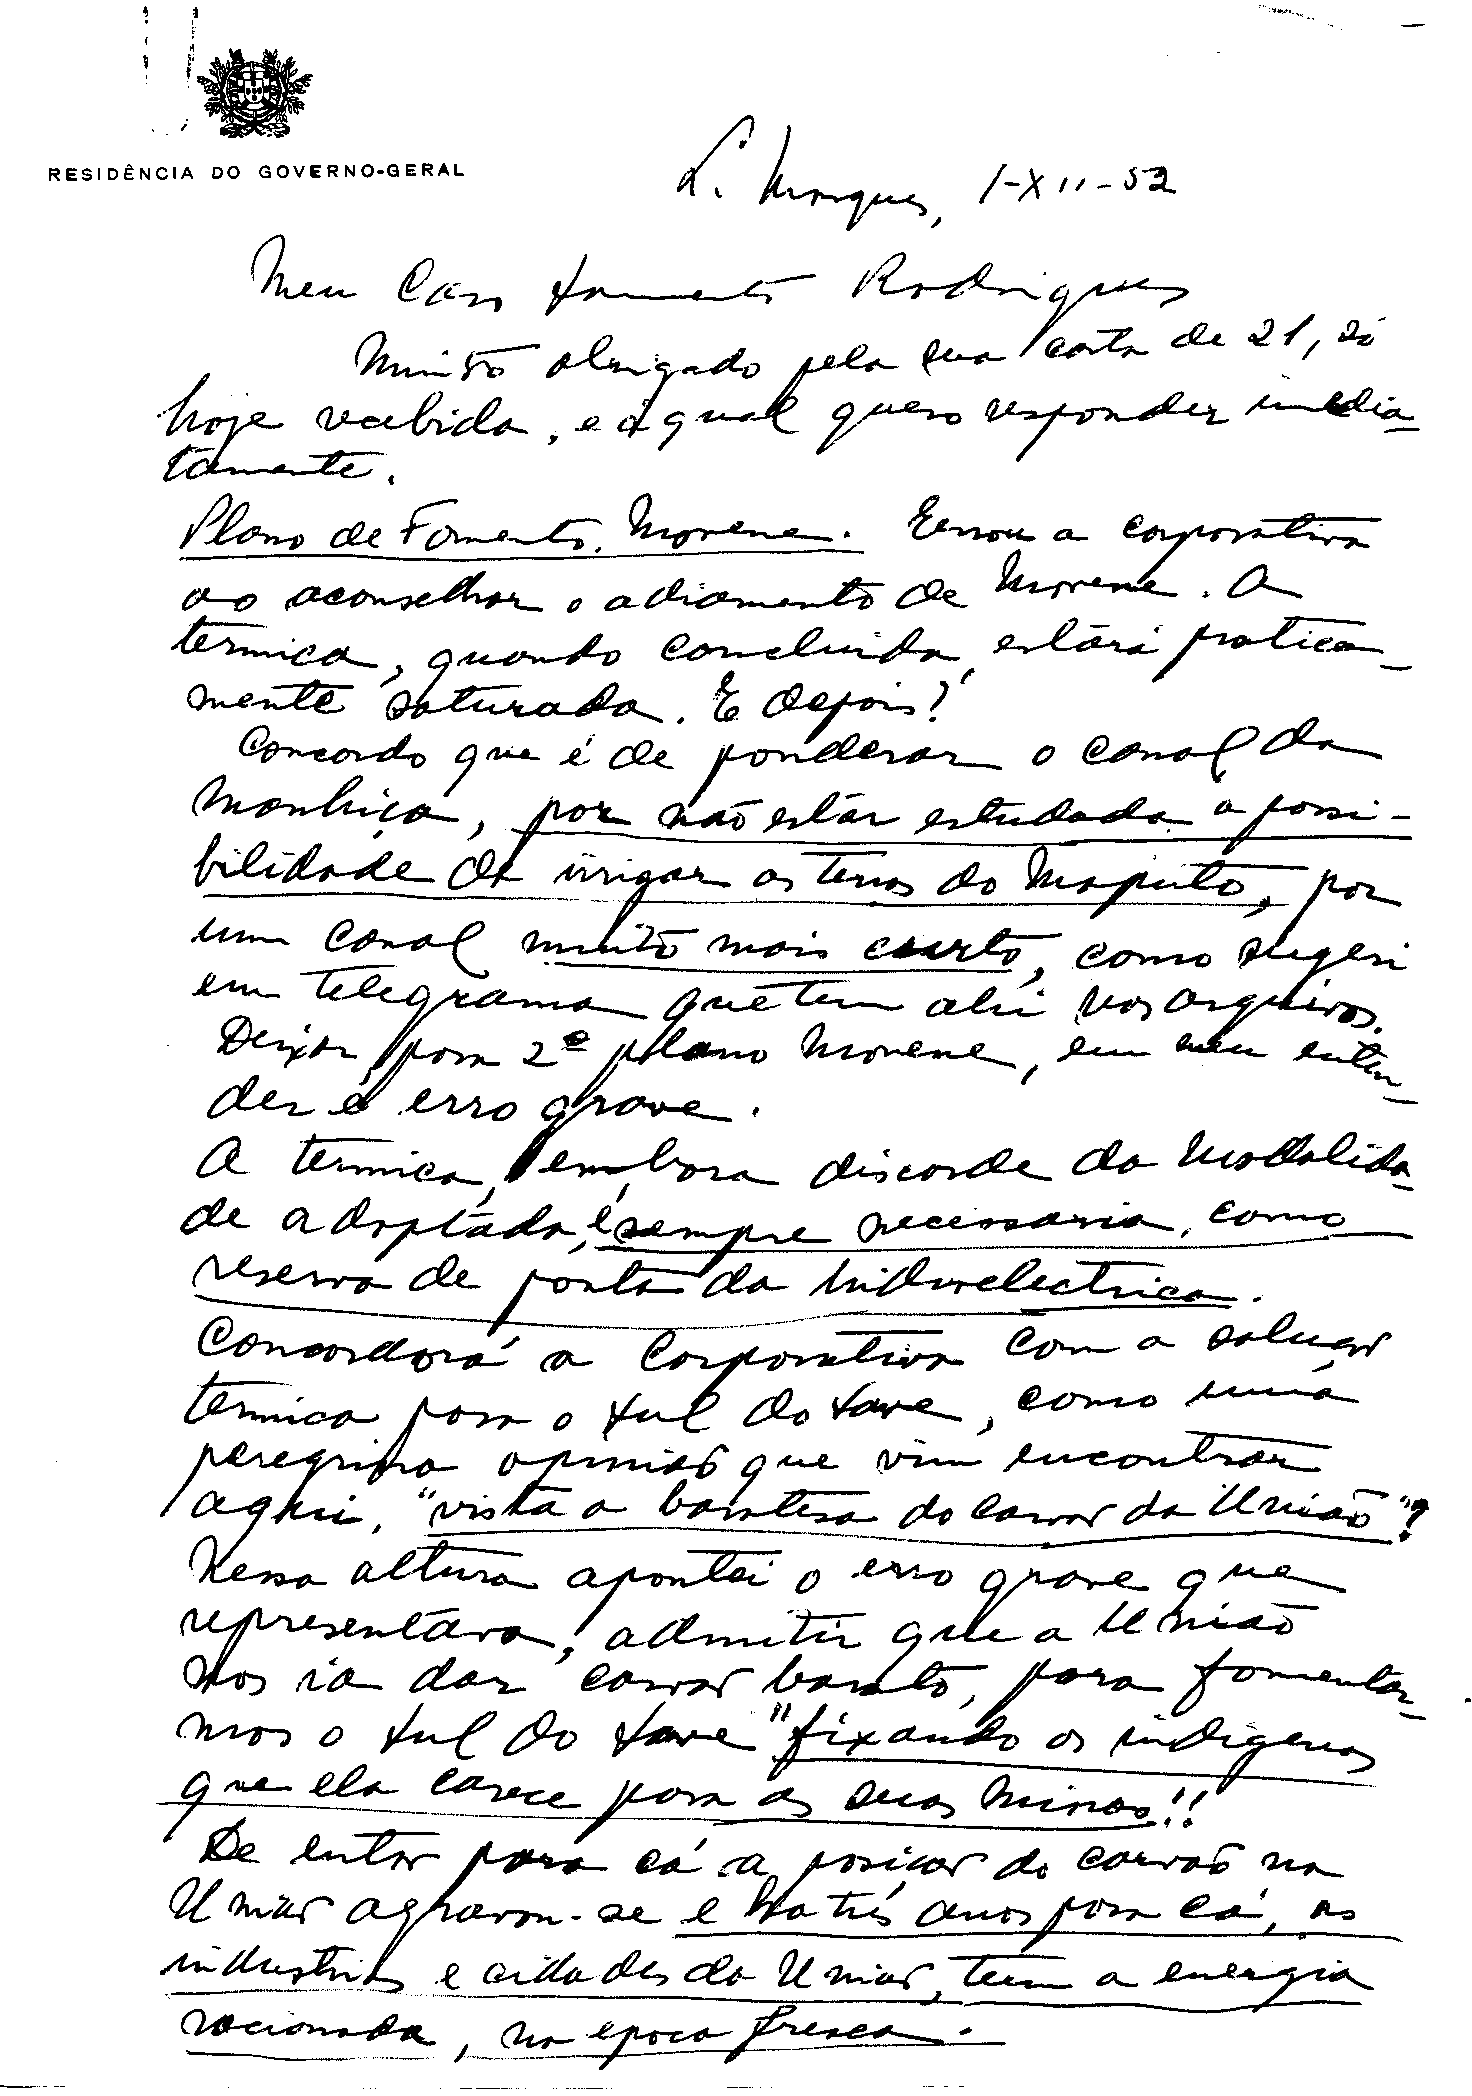 RESIDÊNCIA DO GOVERNO-GERAL
L. Marques, 1-XII-52
Meu Caro Sarmento Rodrigues
Muito obrigado pela sua carta de 21, só
hoje recebida, e à qual quero responder imedia-
tamente.
Plano de Fomento. Movene. Errou a corporativa
ao aconselhar o adiamento de Movene. A
termica, quando concluida, estará pratica-
mente saturada. E depois?
Concordo que é de ponderar o canal da
Manhiça, por não estár estudada a possi-
bilidade de irrigar as terras do Maputo, por
um canal muito mais curto, como sugeri
em telegrama que tem ahi nos arquivos.
Deixar para 2º plano Movene, em meu enten-
der é erro grave.
A termica, embora discorde da modalida-
de adoptada, é sempre necessaria, como
reserva de ponta da hidroelectrica.
Concordará a Corporativa com a solução
termica para o Sul do Save, como uma
peregrina opinião que vim encontrar
aqui, "vista a barateza do carvão da União"?
Nessa altura apontei o erro grave que
representava, admitir que a União
nos ia dar carvão barato, para fomentar-
mos o Sul do Save "fixando os indigenas
que ela carece para as suas minas!!
De então para cá a posição do carvão na
União agravou-se e ha três anos para cá, as
industrias e cidades da União, tem a energia
racionada, na epoca fresca.